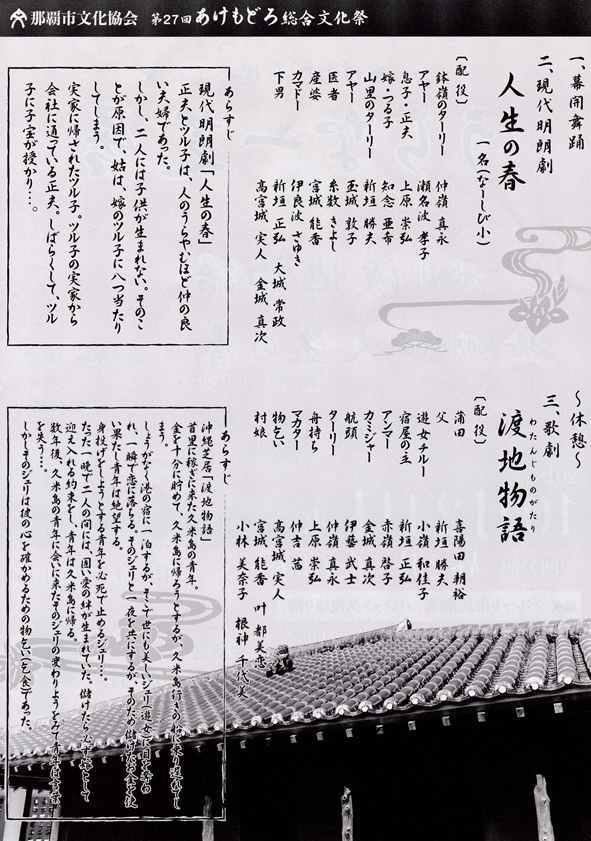 那覇市文化協会 第27回 あけもどろ総合文化祭
一、幕開舞踊
二、現代明朗劇
人生の春
一名(なーしび小)
〔配役〕
鉢嶺のターリー 仲嶺 真永
アヤー 瀬名波 孝子
息子・正夫 上原 崇弘
嫁・つる子 知念 亜希
山里のターリー 新垣 勝夫
アヤー 玉城 敦子
医者 糸数 きよし
産婆 宮城 能香
カマドー 伊良波 さゆき
下男 新垣 正弘 大城 常政
高宮城 実人 金城 真次
あらすじ
現代明朗劇「人生の春」
正夫とツル子は、人のうらやむほど仲の良
い夫婦であった。
しかし、二人には子供が生まれない。そのこ
とが原因で、姑は、嫁のツル子に八つ当たり
してしまう。
実家に帰されたツル子。ツル子の実家から
会社に通っている正夫。しばらくして、ツル
子に子宝が授かり…。
~休憩~
三、歌劇
渡地物語
わたんじものがたり
〔配役〕
蒲田 喜陽田 朝裕
父 新垣 勝夫
遊女チルー 小嶺 和佳子
宿屋の主 新垣 正弘
アンマー 赤嶺 啓子
カミジャー 金城 真次
船頭 伊藝 武士
ターリー 仲嶺 真永
舟持ち 上原 崇弘
マカター 仲吉 茜
物乞い 高宮城 実人
村娘 宮城 能香 叶 都美恋
小林 美奈子 根神 千代美
あらすじ
沖縄芝居「渡地物語」
首里に稼ぎに来た久米島の青年。
金を十分に貯めて、久米島に帰ろうとするが、久米島行きの船に乗り遅れてし
まう。
しょうがなく港の宿に一泊するが、そこで世にも美しいジュリ(遊女)に目を奪わ
れ、一瞬で恋に落ちる。そのジュリと一夜を共にするが、そのため儲けたお金を使
い果たした青年は絶望する。
身投げをしようとする青年を必死で止めるジュリ…。
たった一晩で二人の間には、固い愛の絆が生まれていた。儲けたら必ず嫁として
迎え入れる約束をし、青年は久米島に帰る。
数年後、久米島の青年に会いに来たそのジュリの変わりようをみて青年は言葉
を失う…。
しかしそのジュリは彼の心を確かめるための物乞い(乞食)であった。